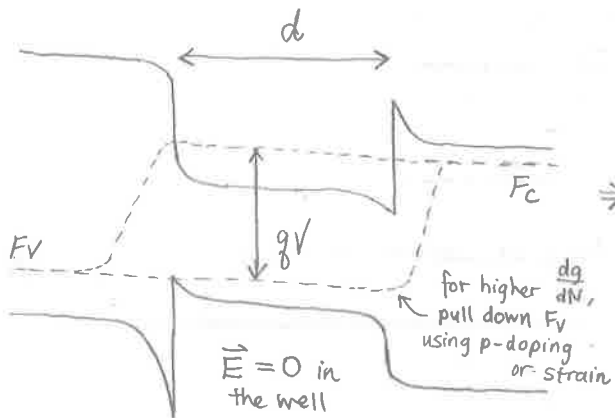 d
F_C
⇒
qV
F_V
for higher dg/dN,
pull down F_V
using p-doping
or strain
E⃗ = 0 in
the well